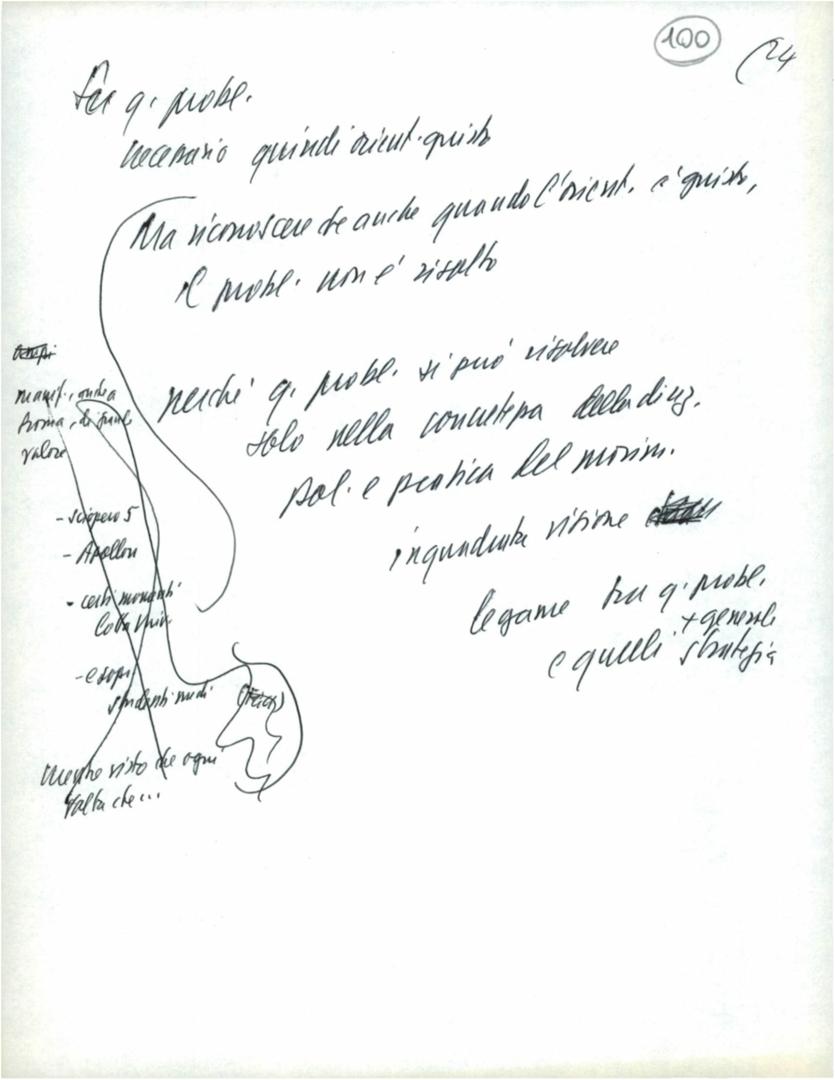 100
24
Su q. probl.
necessario quindi orient. giusto
Ma riconoscere che anche quando l'orient. è giusto,
il probl. non è risolto
perché q. probl. si può risolvere
solo nella concretezza della direz.
pol. e pratica del movim.
inquadrata visione
legame tra q. probl.
+ generale
e quelli strategia
manif., anche a
Roma, di
valore
- sciopero 5
- Apollon
- certi momenti
lotta Univ.
- e sopr.
studenti medi
Mentre visto che ogni
volta che...